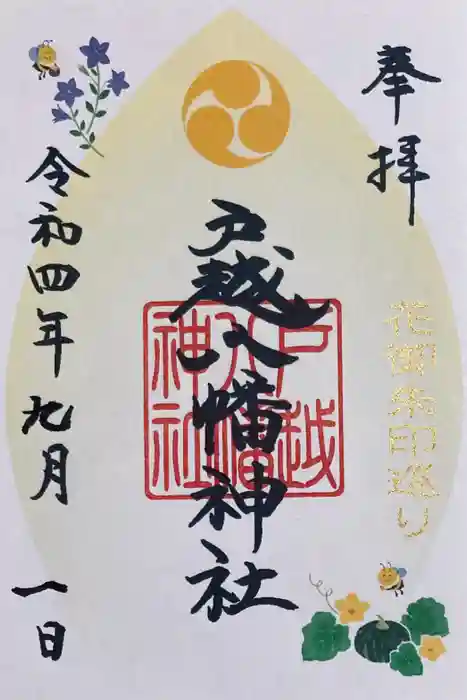 奉拝
花御朱印巡り
戸越八幡神社
戸越
八幡
神社
令和四年九月一日